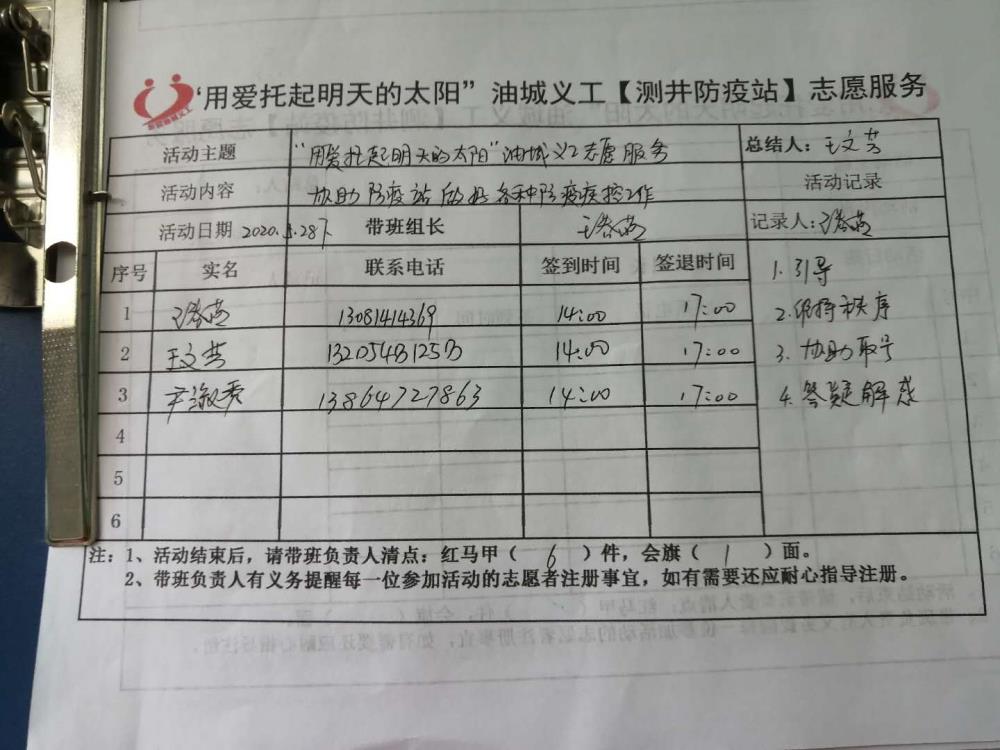 “用爱托起明天的太阳” 油城义工【测井防疫站】志愿服务
活动主题 “用爱托起明天的太阳”油城义工志愿服务 总结人：王文芸
活动内容 协助防疫站做好各种防疫疾控工作 活动记录
活动日期 2020.5.28下 带班组长 记录人：
序号 实名 联系电话 签到时间 签退时间 1.引导
1 13081414369 14:00 17:00 2.维持秩序
2 王文芸 13205431253 14:00 17:00 3.协助取号
3 尹淑秀 13864727863 14:00 17:00 4.答疑解惑
4
5
6
注：1、活动结束后，请带班负责人清点：红马甲（6）件，会旗（1）面。
2、带班负责人有义务提醒每一位参加活动的志愿者注册事宜，如有需要还应耐心指导注册。